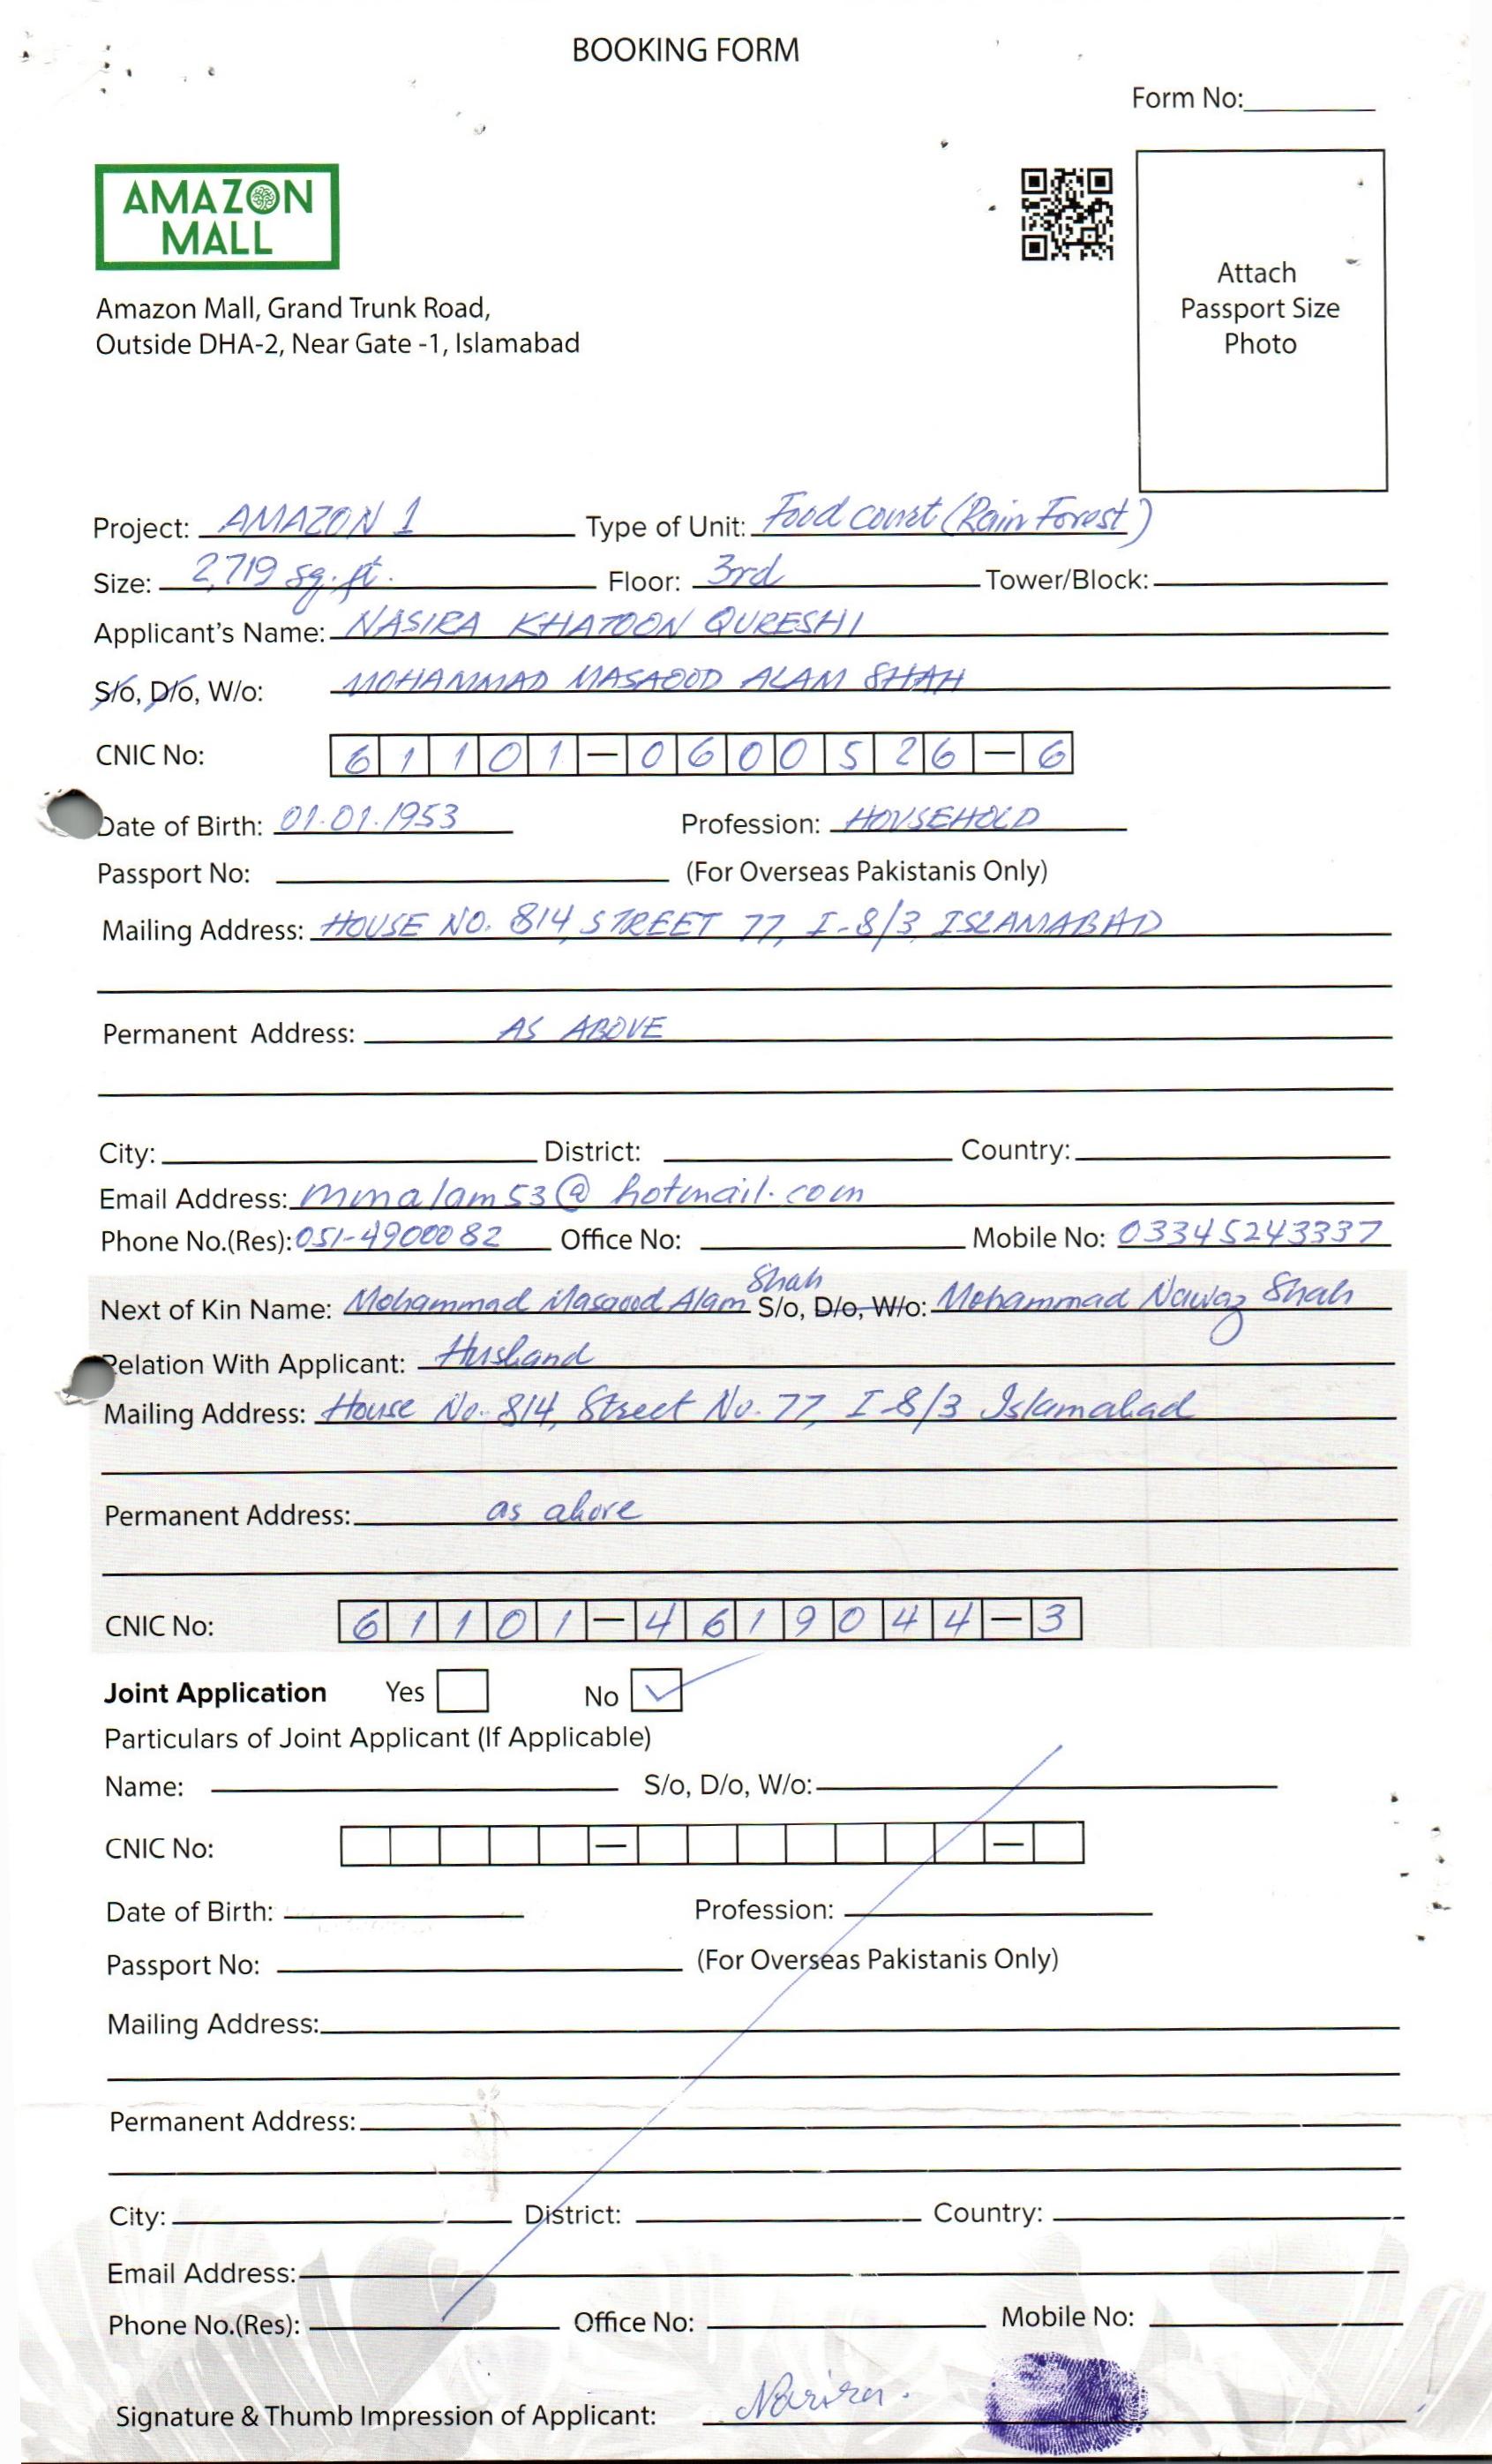 BOOKING FORM
Form No:
AMAZON
MALL
Attach
Passport Size
Photo
Amazon Mall, Grand Trunk Road,
Outside DHA-2, Near Gate -1, Islamabad
Project: AMAZON 1 Type of Unit: Food court (Rain Forest)
Size: 2,719 sq.ft. Floor: 3rd Tower/Block:
Applicant's Name: NASIRA KHATOON QURESHI
S/o, D/o, W/o: MOHAMMAD MASAOOD ALAM SHAH
CNIC No: 61101-0600526-6
Date of Birth: 01.01.1953 Profession: HOUSEHOLD
Passport No: (For Overseas Pakistanis Only)
Mailing Address: HOUSE NO. 814, STREET 77, I-8/3, ISLAMABAD
Permanent Address: AS ABOVE
City: District: Country:
Email Address: mmalam53@hotmail.com
Phone No.(Res): 051-4900082 Office No: Mobile No: 03345243337
Next of Kin Name: Mohammad Masaood Alam Shah S/o, D/o, W/o: Mohammad Nawaz Shah
Relation With Applicant: Husband
Mailing Address: House No. 814, Street No. 77, I-8/3 Islamabad
Permanent Address: as above
CNIC No: 61101-4619044-3
Joint Application Yes No ✓
Particulars of Joint Applicant (If Applicable)
Name: S/o, D/o, W/o:
CNIC No: — —
Date of Birth: Profession:
Passport No: (For Overseas Pakistanis Only)
Mailing Address:
Permanent Address:
City: District: Country:
Email Address:
Phone No.(Res): Office No: Mobile No:
Signature & Thumb Impression of Applicant: Nasira.